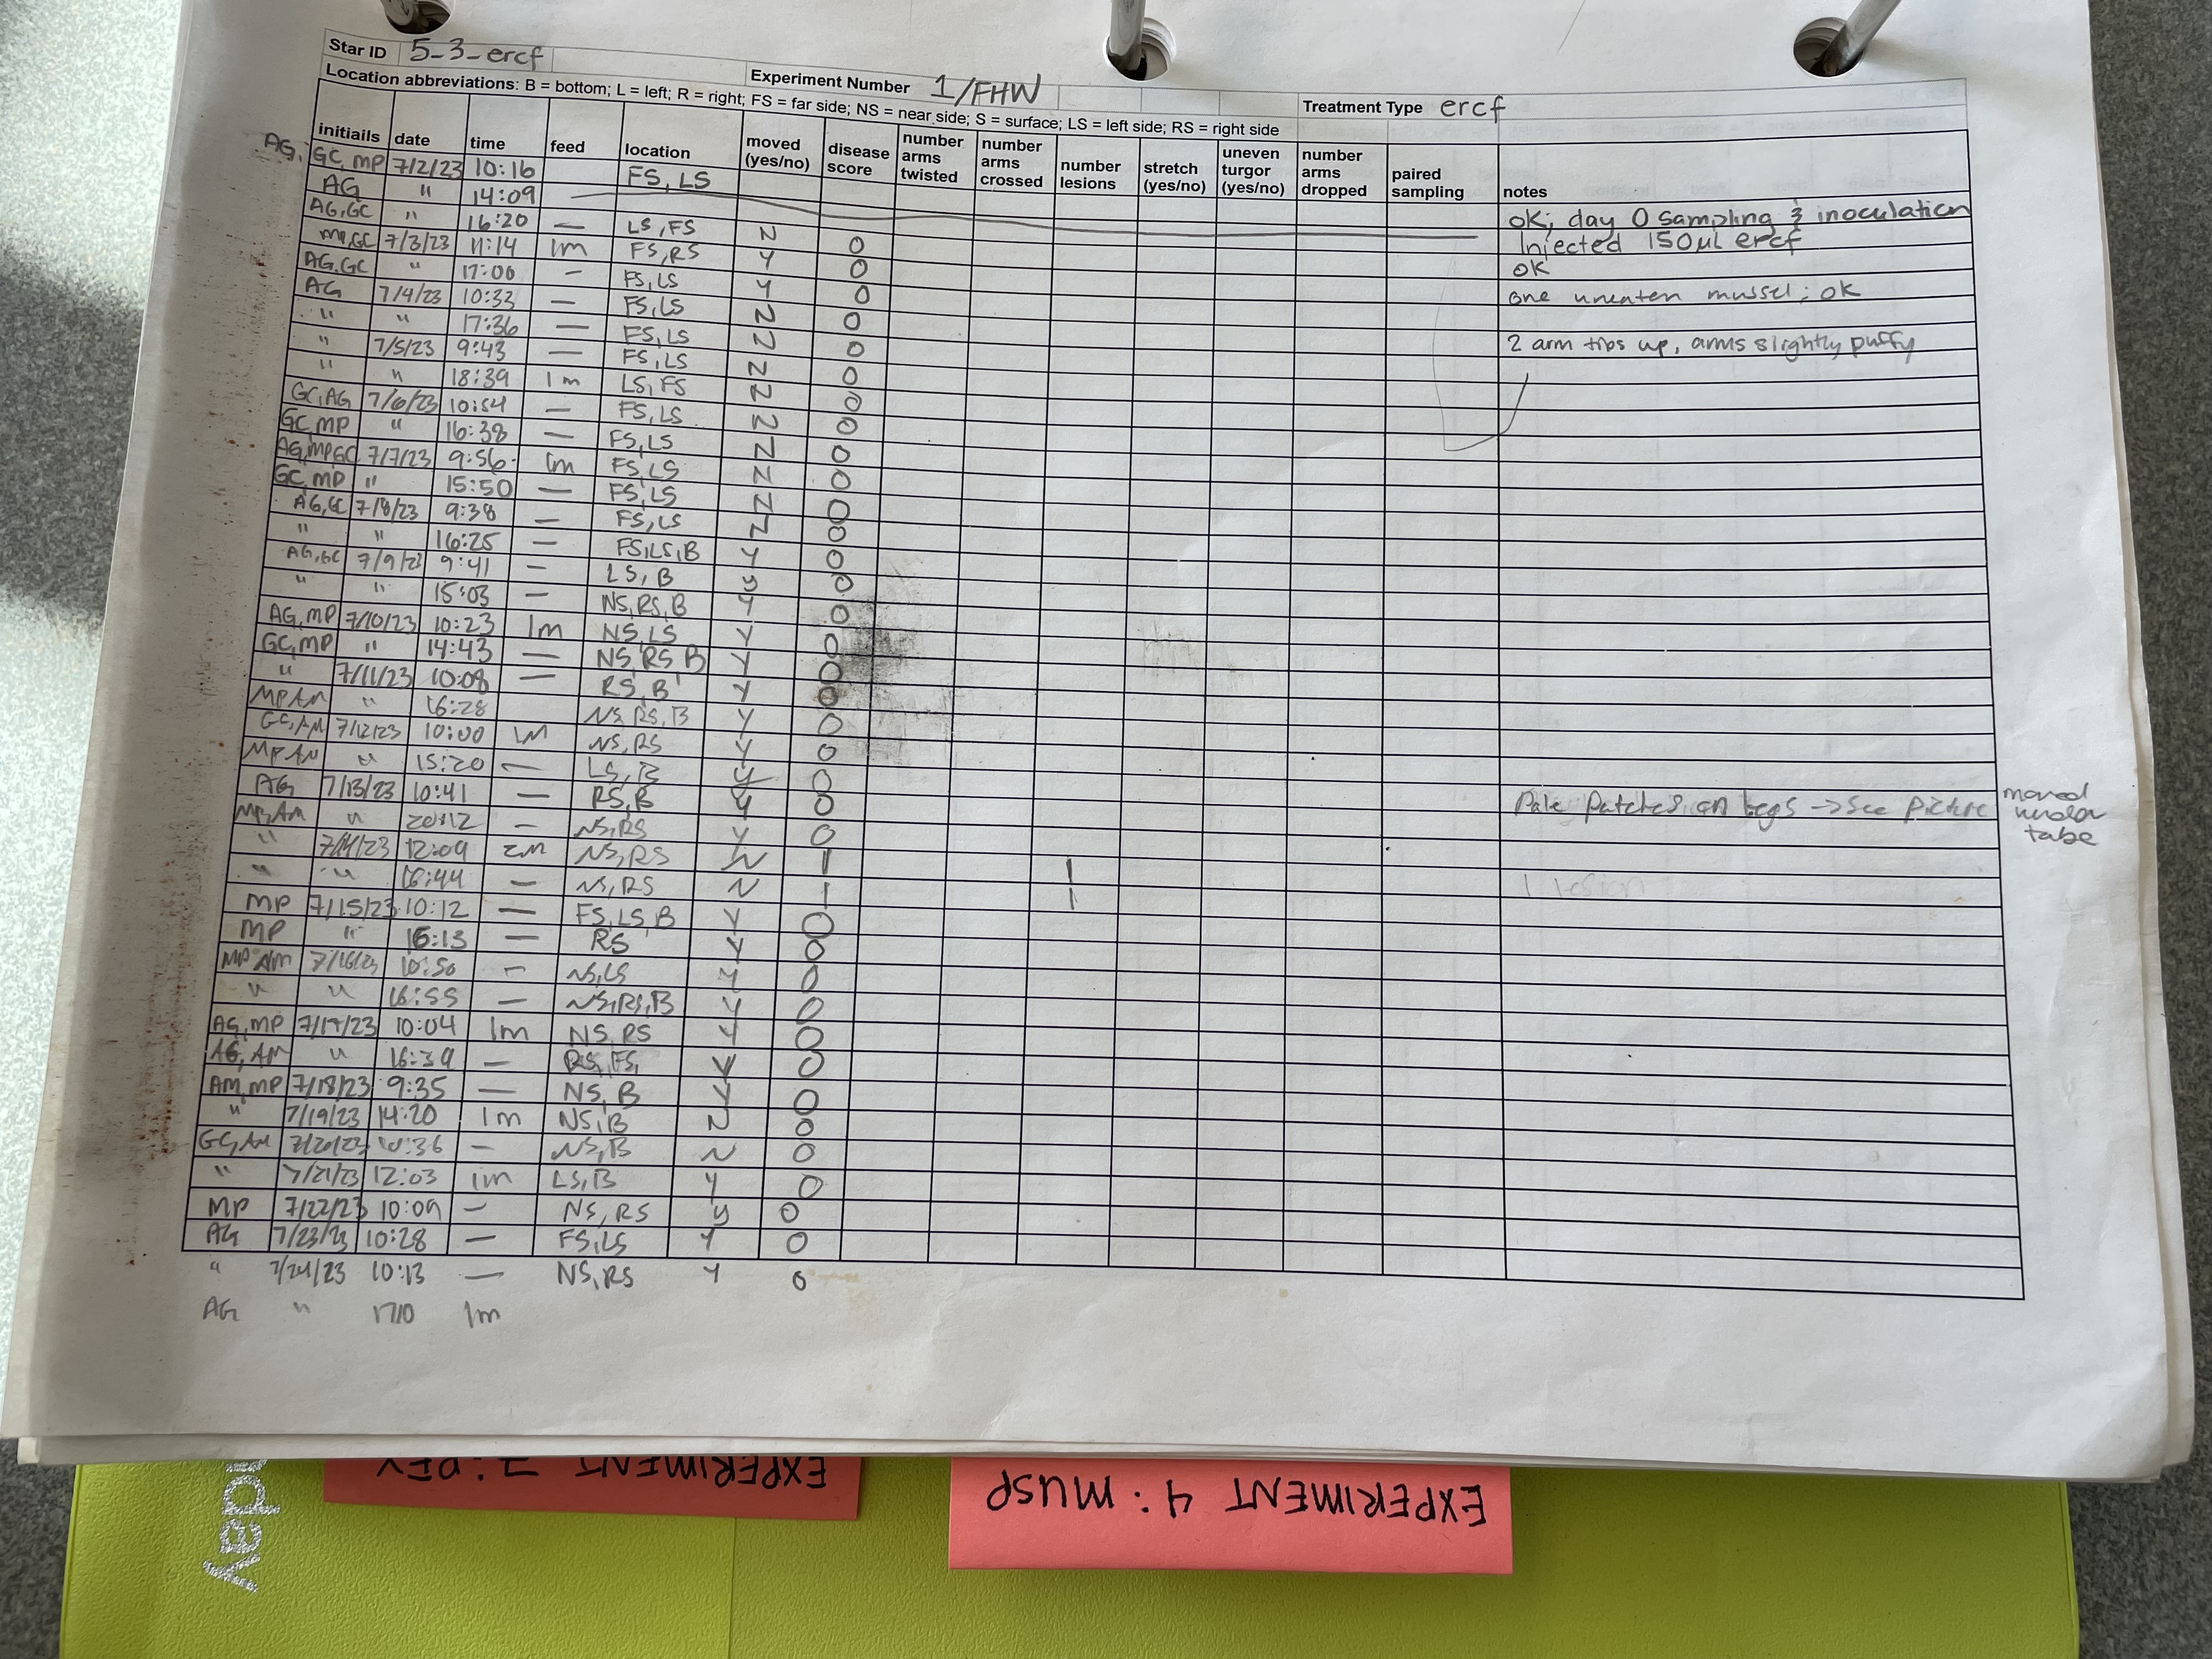 Star ID 5-3-ercf Experiment Number 1/FHW Treatment Type ercf
Location abbreviations: B = bottom; L = left; R = right; FS = far side; NS = near side; S = surface; LS = left side; RS = right side
initiails date time feed location moved (yes/no) disease score number arms twisted number arms crossed number lesions stretch (yes/no) uneven turgor (yes/no) number arms dropped paired sampling notes
AG, GC, MP 7/2/23 10:16 FS, LS OK; day 0 sampling & inoculation
AG " 14:09 — Injected 150µL ercf
AG, GC " 16:20 — LS, FS N 0 OK
MP, GC 7/3/23 11:14 1m FS, RS Y 0 one uneaten mussel; OK
AG, GC " 17:00 — FS, LS Y 0
AG 7/4/23 10:33 — FS, LS N 0 2 arm tips up, arms slightly puffy
" " 17:36 — FS, LS N 0
" 7/5/23 9:43 — FS, LS N 0
" " 18:39 1m LS, FS N 0
GC, AG 7/6/23 10:54 — FS, LS N 0
GC, MP " 16:38 — FS, LS N 0
AG, MP, GC 7/7/23 9:56 1m FS, LS N 0
GC, MP " 15:50 — FS, LS N 0
AG, GC 7/8/23 9:38 — FS, LS N 0
" " 16:25 — FS, LS, B Y 0
AG, GC 7/9/23 9:41 — LS, B y 0
" " 15:03 — NS, RS, B Y 0
AG, MP 7/10/23 10:23 1m NS, LS Y 0
GC, MP " 14:43 — NS, RS, B Y 0
" 7/11/23 10:08 — RS, B Y 0
MP, AM " 16:28 NS, RS, B Y 0
GC, AM 7/12/23 10:00 1M NS, RS Y 0
MP, AM " 15:20 — LS, B Y 0
AG 7/13/23 10:41 — RS, B Y 0 Pale patches on legs → see picture moved under tube
MP, AM " 20:12 — NS, RS Y 0
" 7/14/23 12:09 2M NS, RS N 1 1
" " 16:44 — NS, RS N 1 1 1 lesion
MP 7/15/23 10:12 — FS, LS, B Y 0
MP " 16:13 — RS Y 0
MP, AM 7/16/23 10:50 — NS, LS Y 0
" " 16:55 — NS, RS, B Y 0
AG, MP 7/17/23 10:04 1m NS, RS Y 0
AG, AM " 16:39 — RS, FS, Y 0
AM, MP 7/18/23 9:35 — NS, B Y 0
" 7/19/23 14:20 1m NS, B N 0
GC, AM 7/20/23 10:36 — NS, B N 0
" 7/21/23 12:03 1m LS, B Y 0
MP 7/22/23 10:09 — NS, RS y 0
AG 7/23/23 10:28 — FS, LS Y 0
" 7/24/23 10:13 — NS, RS Y 0
AG " 1710 1m
EXPERIMENT 4: MUSP